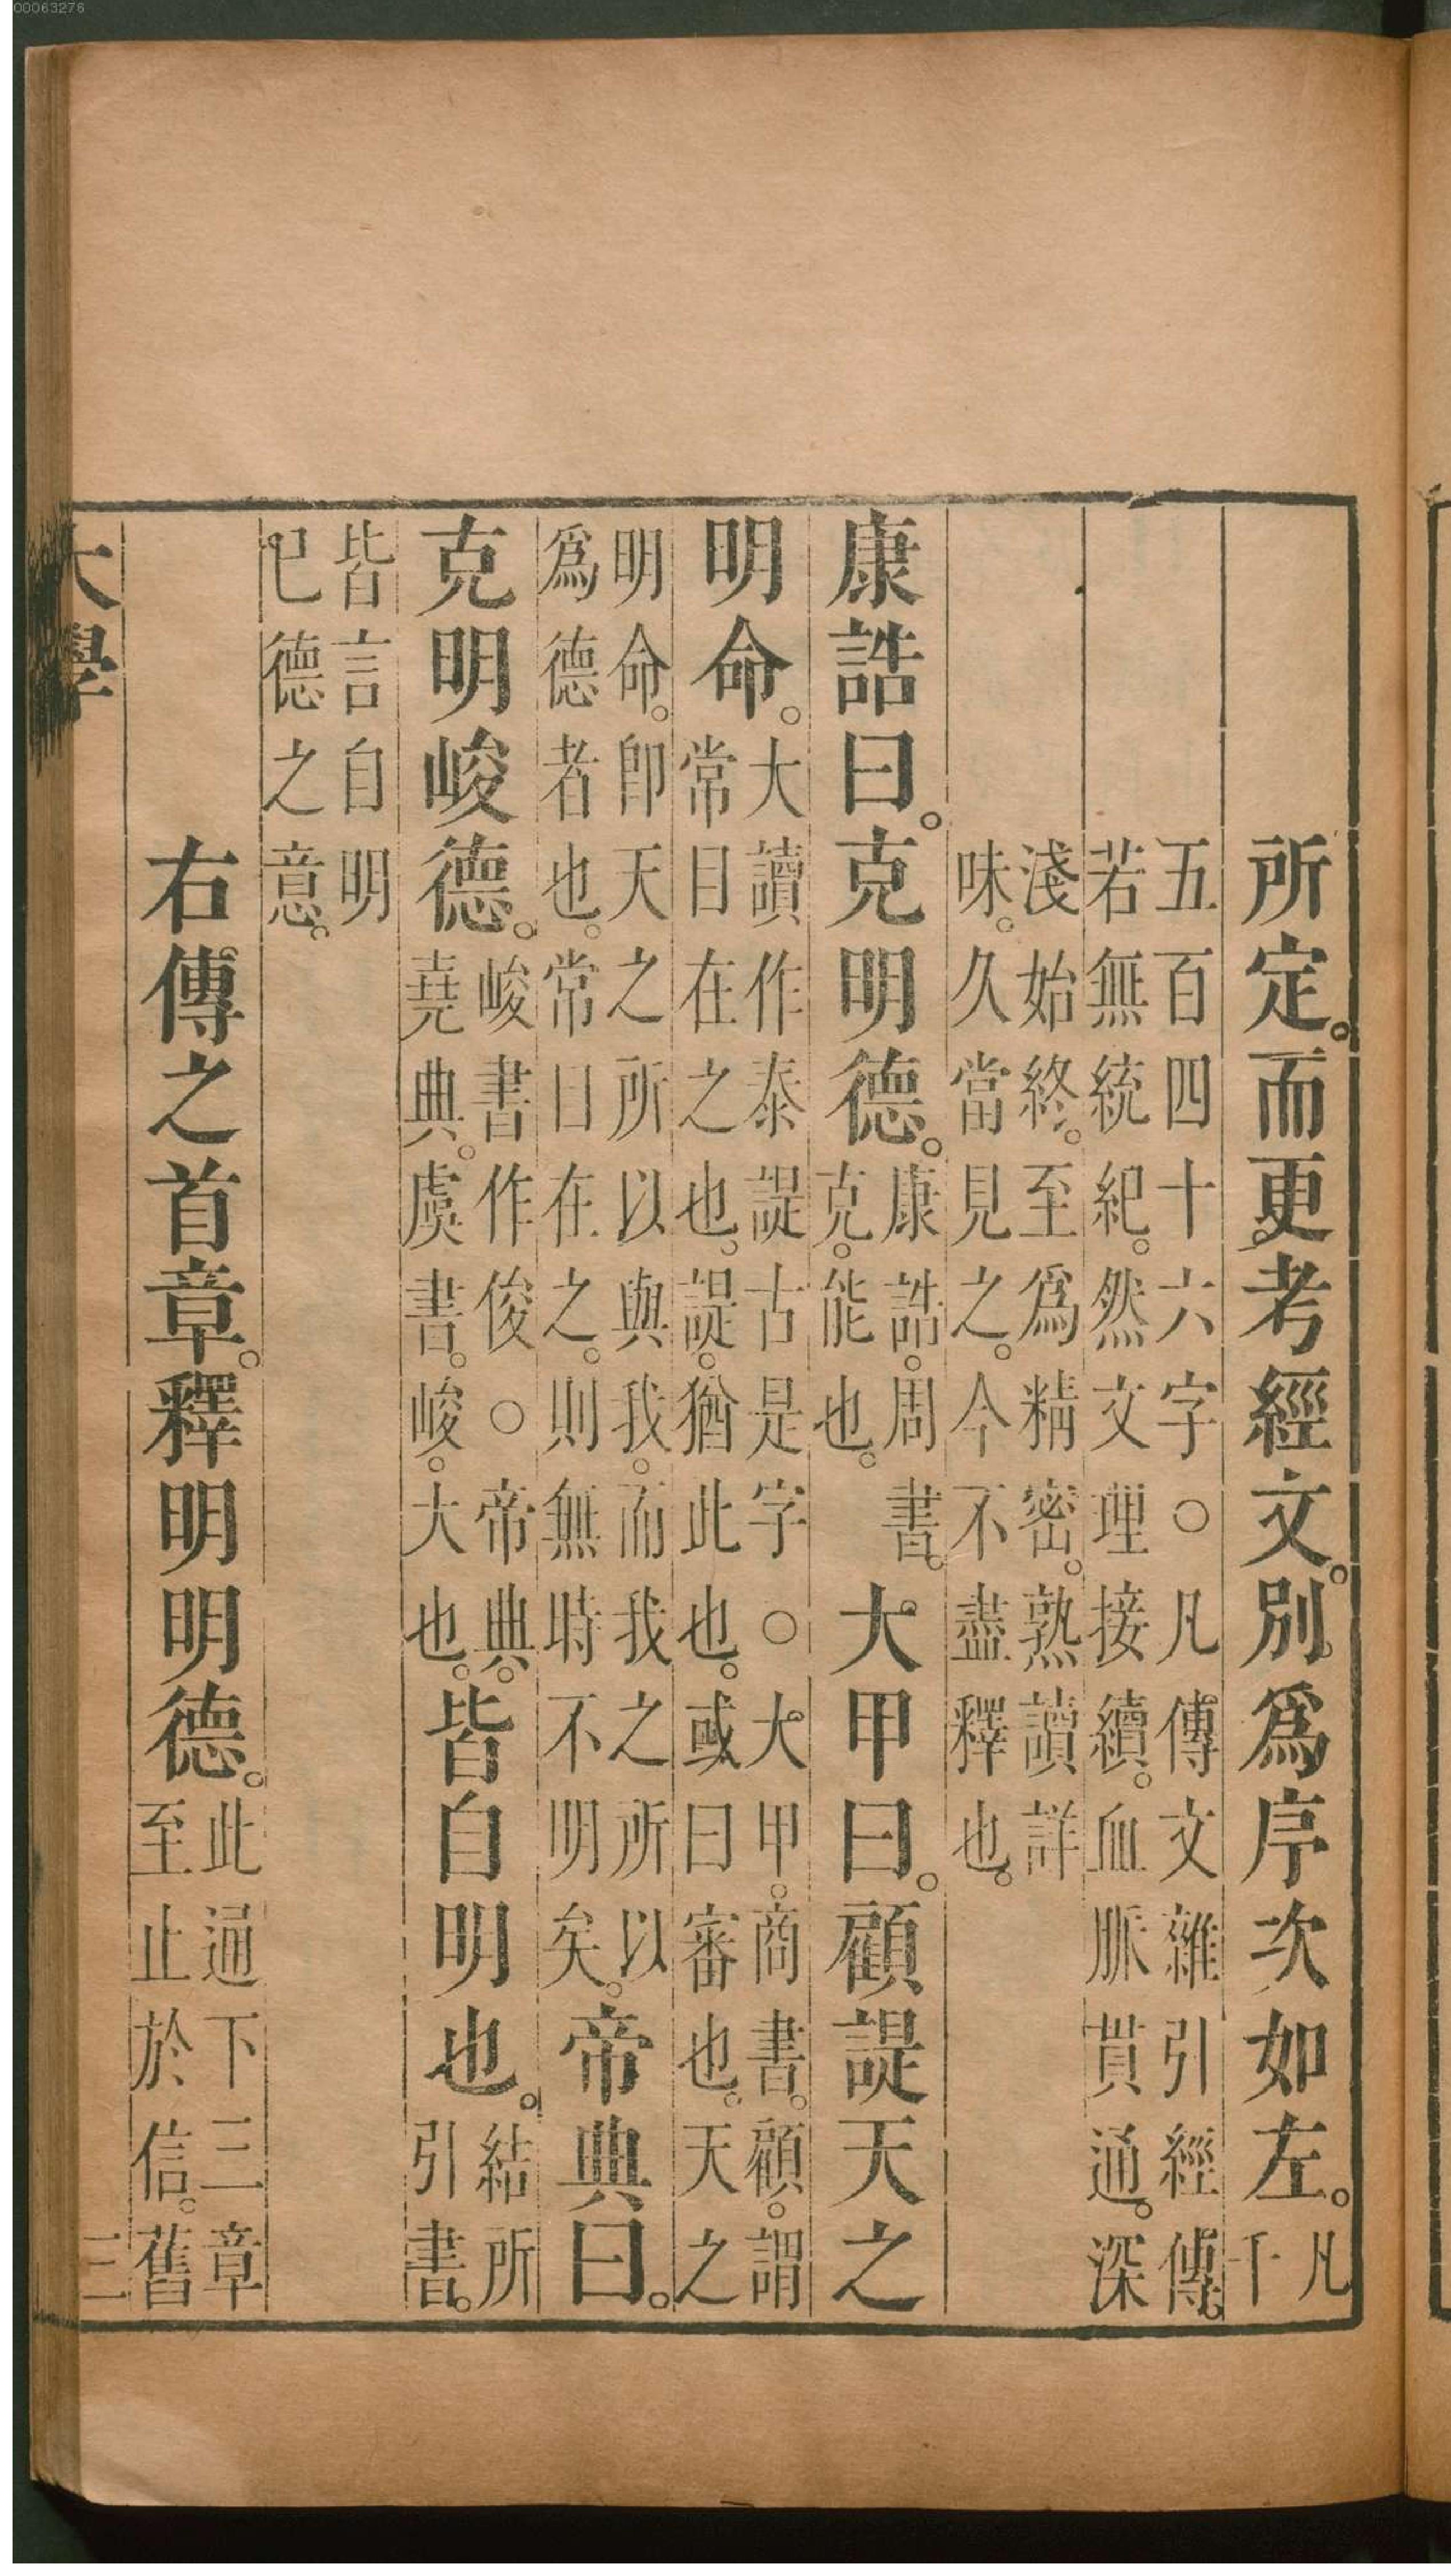 00063276
所定。而更考經文。別爲序次如左。凡千
五百四十六字○凡傳文雜引經傳。
若無統紀。然文理接續。血脈貫通。深
淺始終。至爲精密。熟讀詳
味。久當見之。今不盡釋也。
康誥曰。克明德。康誥。周書。克。能也。大甲曰。顧諟天之
明命。大讀作泰諟古是字○大甲。商書。顧。謂常目在之也。諟。猶此也。或曰審也。天之
明命。卽天之所以與我。而我之所以爲德者也。常日在之。則無時不明矣。帝典曰。
克明峻德。峻書作俊○帝典。堯典。虞書。峻。大也。皆自明也。結所引書。
皆言自明
已德之意。
右傳之首章。釋明明德。此通下三章至止於信。舊
大學 三